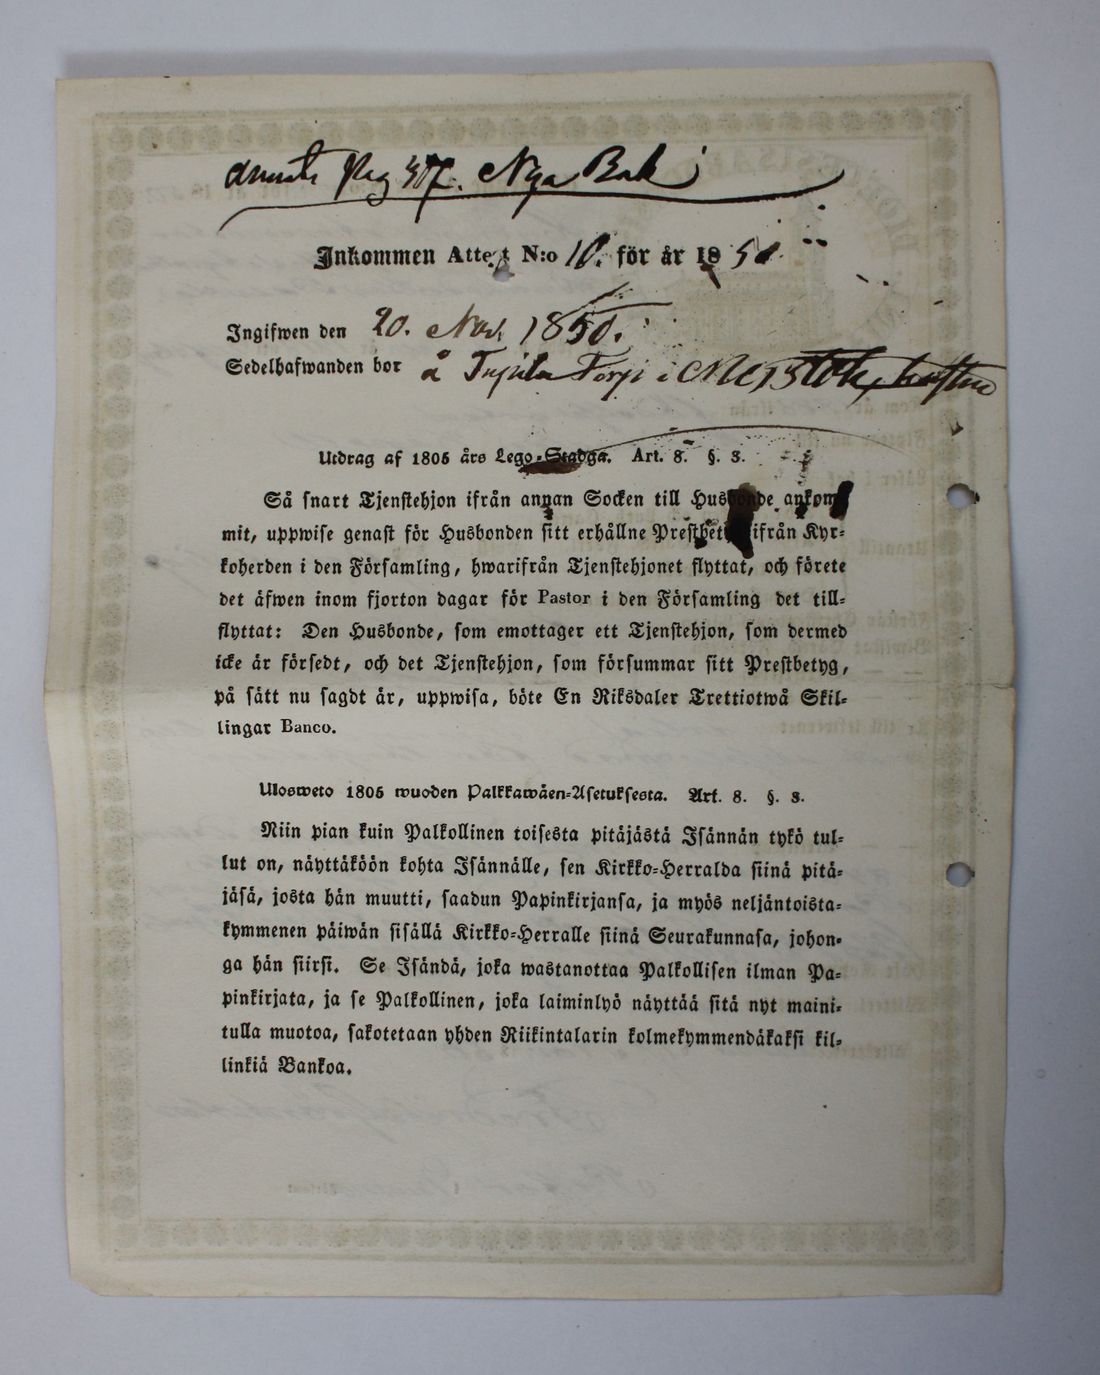 Pag 317. Nya Bok
Inkommen Attest N:o 10. för år 1850
Ingifwen den 20. Nov. 1850.
Sedelhafwanden bor å Torp i
Utdrag af 1805 års Lego-Stadga. Art. 8. §. 3.
Så snart Tjenstehjon ifrån annan Socken till Husbonde ankom-
mit, uppwise genast för Husbonden sitt erhållne Prestbetyg ifrån Kyr-
koherden i den Församling, hwarifrån Tjenstehjonet flyttat, och förete
det äfwen inom fjorton dagar för Pastor i den Församling det till-
flyttat: Den Husbonde, som emottager ett Tjenstehjon, som dermed
icke är försedt, och det Tjenstehjon, som försummar sitt Prestbetyg,
på sätt nu sagdt är, uppwisa, böte En Riksdaler Trettiotwå Skil-
lingar Banco.
Ulosweto 1805 wuoden Palkkawäen-Asetuksesta. Art. 8. §. 3.
Niin pian kuin Palkollinen toisesta pitäjästä Isännän tykö tul-
lut on, näyttäköön kohta Isännälle, sen Kirkko-Herralda siinä pitä-
jäsä, josta hän muutti, saadun Papinkirjansa, ja myös neljäntoista-
kymmenen päiwän sisällä Kirkko-Herralle siinä Seurakunnasa, johon-
ga hän siirsi. Se Isändä, joka wastanottaa Palkollisen ilman Pa-
pinkirjata, ja se Palkollinen, joka laiminlyö näyttää sitä nyt maini-
tulla muotoa, sakotetaan yhden Riikintalarin kolmekymmendäkaksi kil-
linkiä Bankoa.